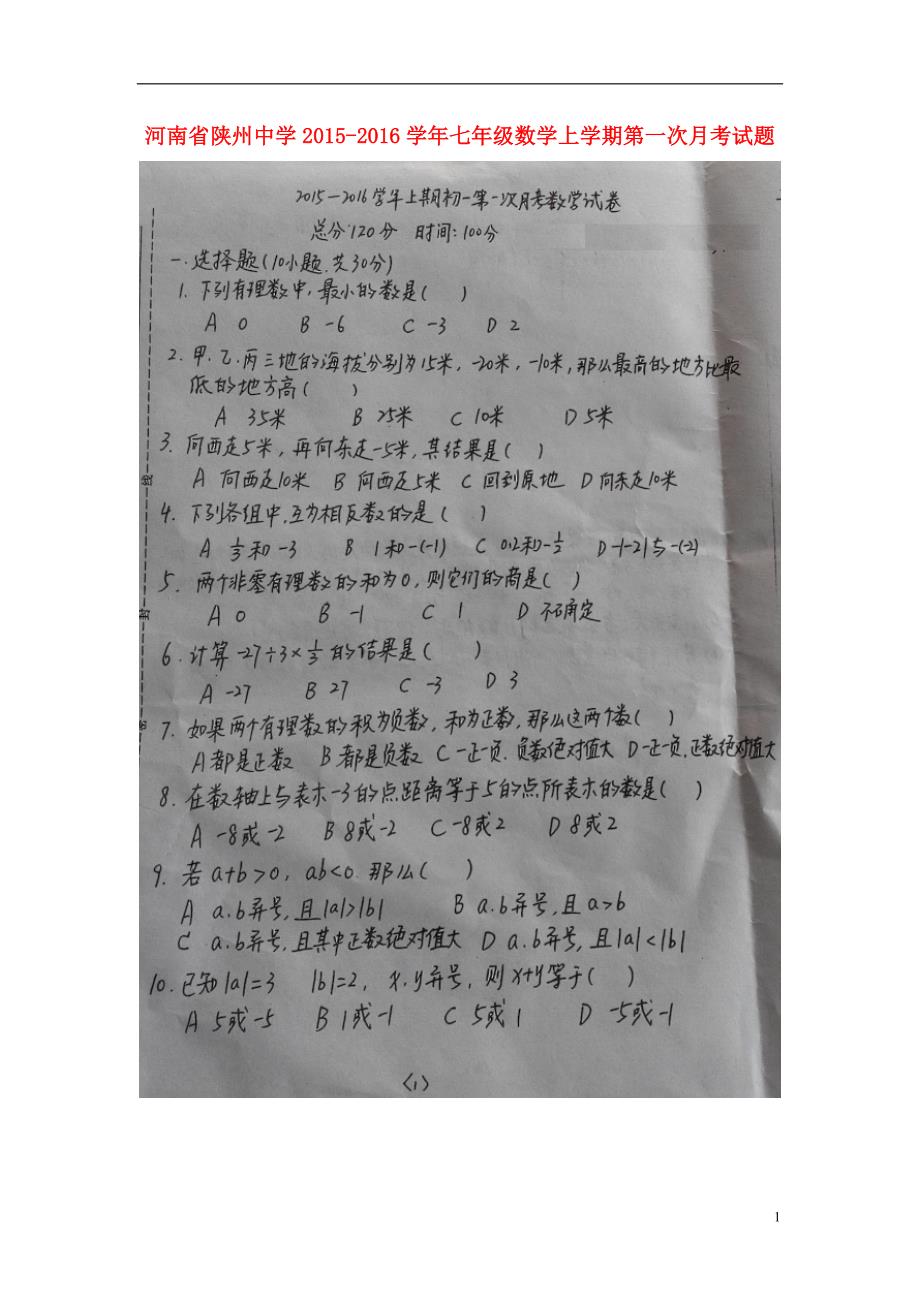 河南省陕州中学2015-2016学年七年级数学上学期第一次月考试题
2015—2016学年上期初一第一次月考数学试卷
总分:120分 时间:100分
一.选择题(10小题.共30分)
1. 下列有理数中,最小的数是( )
A 0 B -6 C -3 D 2
2. 甲.乙.丙三地的海拔分别为15米,-20米,-10米,那么最高的地方比最
低的地方高( )
A 35米 B 25米 C 10米 D 5米
3. 向西走5米,再向东走-5米,其结果是( )
A 向西走10米 B 向西走5米 C 回到原地 D 向东走10米
4. 下列各组中,互为相反数的是( )
A 1/3和-3 B 1和-(-1) C 0.2和-1/5 D -|-2|与-(-2)
5. 两个非零有理数的和为0,则它们的商是( )
A 0 B -1 C 1 D 不确定
6. 计算-27÷3×1/3的结果是( )
A -27 B 27 C -3 D 3
7. 如果两个有理数的积为负数,和为正数,那么这两个数( )
A 都是正数 B 都是负数 C 一正一负.负数绝对值大 D 一正一负.正数绝对值大
8. 在数轴上与表示-3的点距离等于5的点所表示的数是( )
A -8或-2 B 8或-2 C -8或2 D 8或2
9. 若a+b>0,ab<0.那么( )
A a.b异号,且|a|>|b| B a.b异号,且a>b
C a.b异号,且其中正数绝对值大 D a.b异号,且|a|<|b|
10. 已知|a|=3 |b|=2, x.y异号,则x+y等于( )
A 5或-5 B 1或-1 C 5或1 D -5或-1
<1>
线
封
密
1